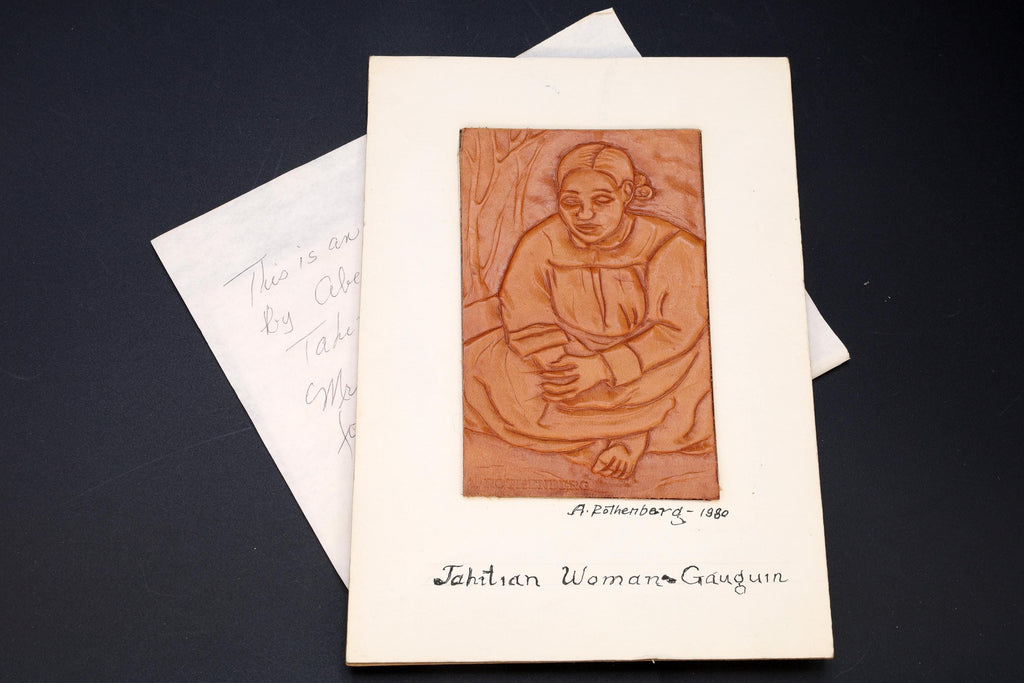 This is an
by Abe
Tahi
Mr
fo
ROTHENBERG
A. Rothenberg - 1980
Tahitian Woman - Gauguin